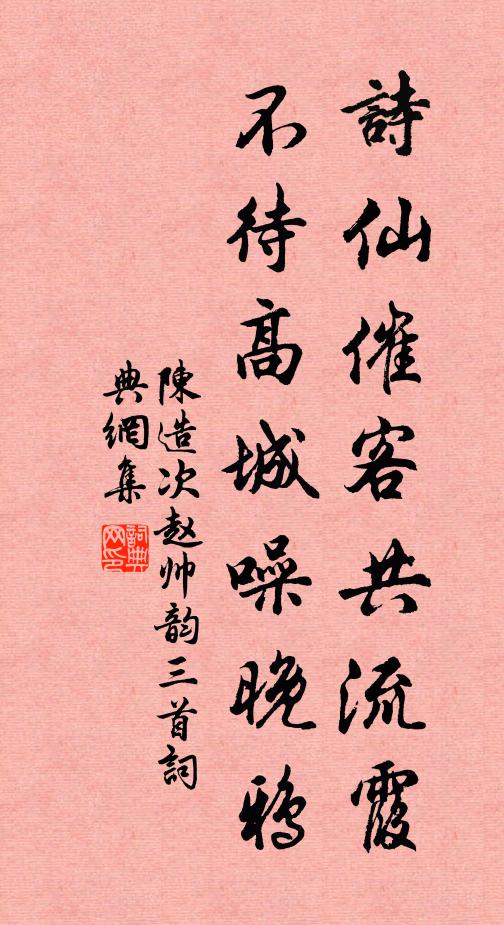 詩仙催客共流霞
不待高城噪晚鴉
陳造次赵帅韵三首詞
典網集
詞典
网印